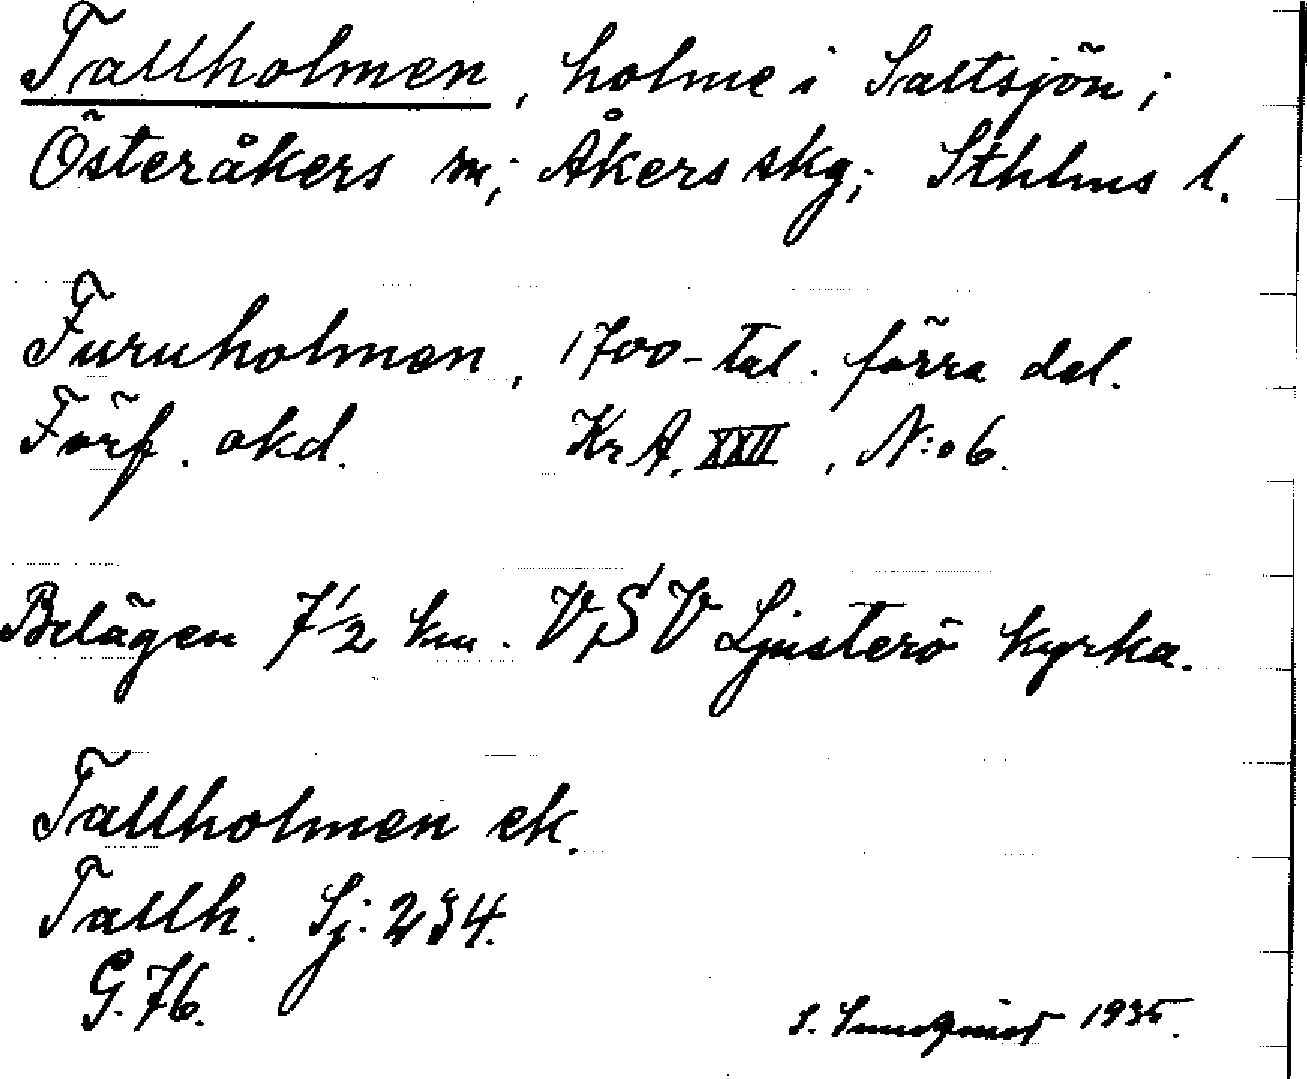 Tallholmen, holme i Saltsjön;
Österåkers sn; Åkers skg; Sthlms l.
Furuholmen, 1700-tal. förra del.
Förf. okd. KrA. XXII, N:o 6.
Belägen 7 1/2 km. VSV Ljusterö kyrka.
Tallholmen ek.
Tallh. Sj: 234.
G. 76.
S. Sundqvist 1935.